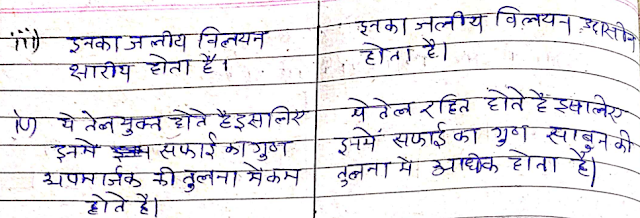 iii) इनका जलीय विलयन
क्षारीय होता है।
iv) ये तेल युक्त होते है इसलिए
इनमे सफाई का गुण
अपमार्जक की तुलना मे कम
होते है।
इनका जलीय विलयन उदासीन
होता है।
ये तेल रहित होते है इसलिए
इनमें सफाई का गुण साबुन की
तुलना मे अधिक होता है।